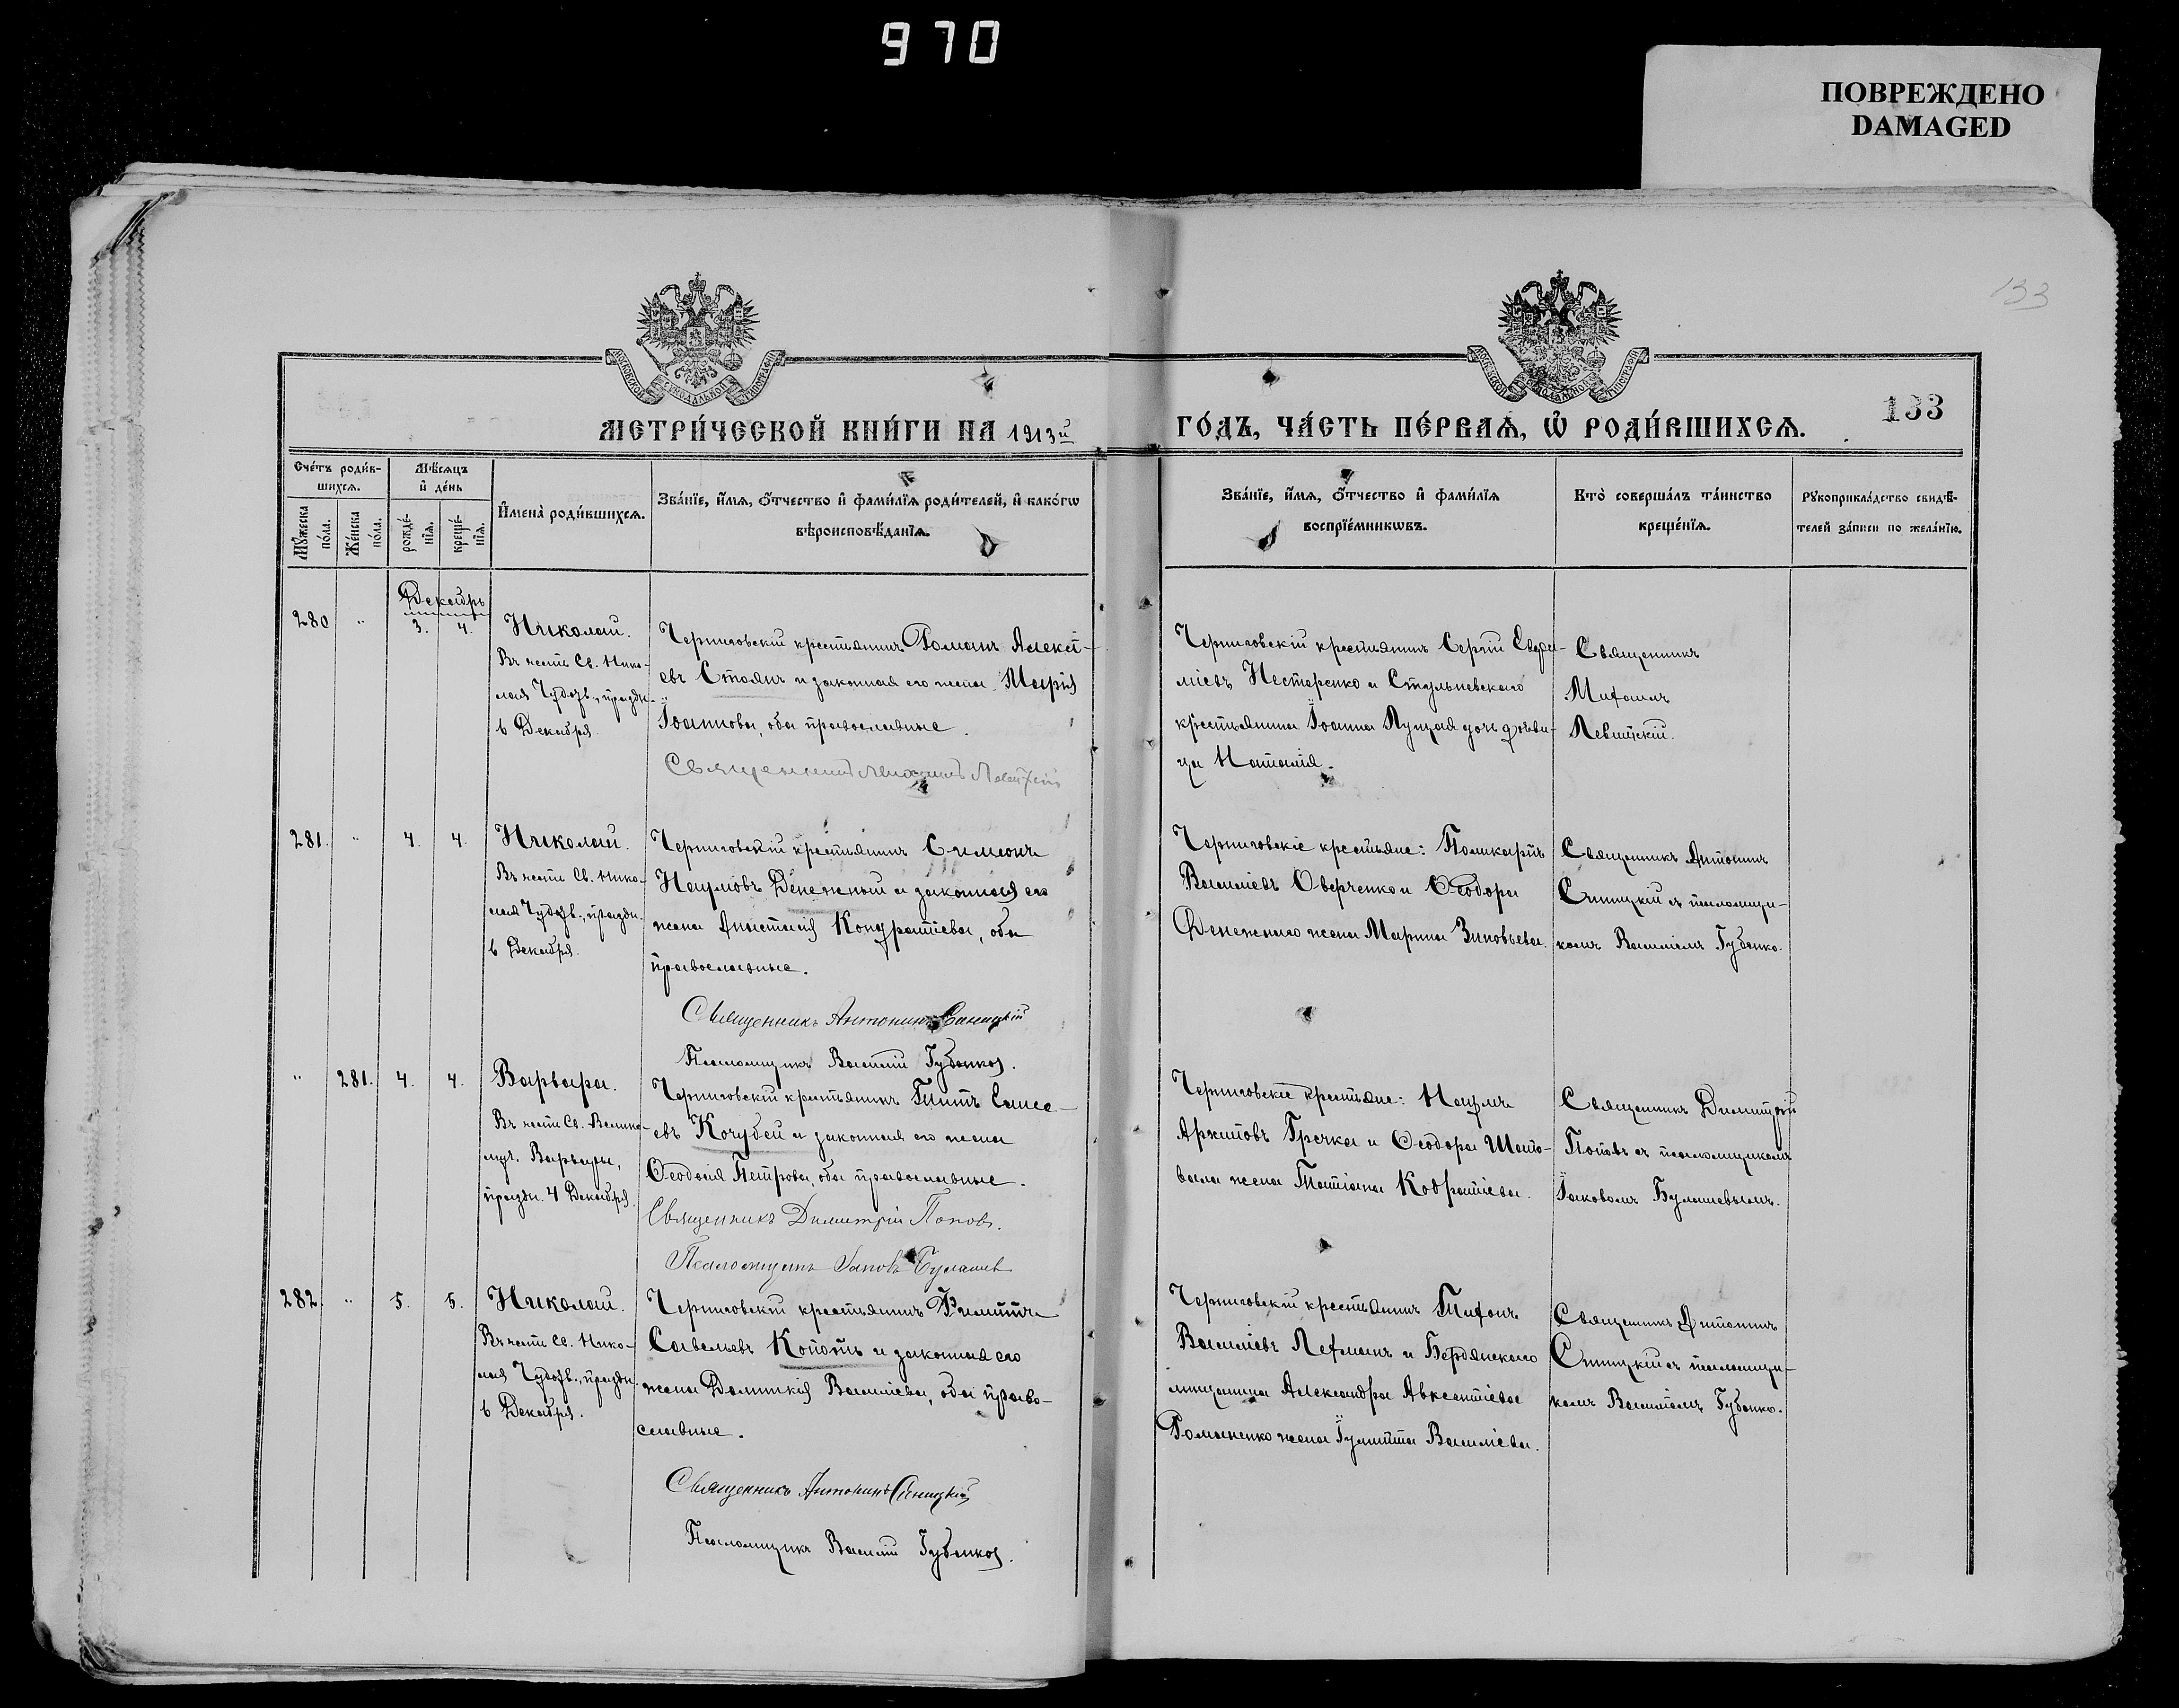 970
ПОВРЕЖДЕНО
DAMAGED
133
133
МЕТРИ́ЧЕСКОЙ КНИ́ГИ НА 1913й
ГО́ДЪ, ЧА́СТЬ ПЕ́РВАѦ, Ѡ҆ РОДИ́ВШИХСѦ.
Сче́тъ роди́в-
шихсѧ.
Мѣ́сѧцъ
и҆ де́нь
Мꙋ́жеска
по́ла.
Же́нска
по́ла.
рожде́-
нїѧ.
креще́-
нїѧ.
И҆мена̀ роди́вшихсѧ.
Зва́нїе, и҆́мѧ, ѻ҆́тчество и҆ фами́лїѧ роди́телей, и҆ како́гѡ
вѣроисповѣ́данїѧ.
Зва́нїе, и҆́мѧ, ѻ҆́тчество и҆ фами́лїѧ
воспрїе́мникѡвъ.
Кто̀ соверша́лъ та́инство
креще́нїѧ.
Рꙋкоприкла́дство свидѣ́-
телей за́писи по жела́нїю.
Декабрь
280 " 3. 4. Николай.
Въ честь Св. Нико-
лая Чудотв., праздн.
6 Декабря.
Черниговскій крестьянинъ Романъ Алексѣ-
евъ Стоянъ и законная его жена Марія
Іоаннова, оба православные.
Священникъ Левитскій
Черниговскій крестьянинъ Сергій Евфи-
міевъ Нестеренко и Стульневскаго
крестьянина Іоанна Луцая дочь дѣви-
ца Наталія.
Священникъ
Михаилъ
Левитскій.
281. " 4. 4. Николай.
Въ честь Св. Нико-
лая Чудотв., праздн.
6 Декабря.
Черниговскій крестьянинъ Симеонъ
Наумовъ Денежный и законная его
жена Анастасія Кондратіева, оба
православные.
Священникъ Антонинъ Синицкій
Псаломщикъ Василій Губенко.
Черниговскіе крестьяне: Поликарпъ
Василіевъ Оверченко и Ѳеодора
Денежнаго жена Марина Зиновьева.
Священникъ Антонинъ
Синицкій съ псаломщи-
комъ Василіемъ Губенко.
" 281. 4. 4. Варвара.
Въ честь Св. Велико-
муч. Варвары,
праздн. 4 Декабря.
Черниговскій крестьянинъ Титъ Елисе-
евъ Кочубей и законная его жена
Ѳеодосія Петрова, оба православные.
Священникъ Димитрій Поповъ.
Псаломщикъ Булашев
Черниговскіе крестьяне: Наумъ
Архиповъ Гречка и Ѳеодора Шапо-
вала жена Татіана Кодратіева.
Священникъ Димитрій
Поповъ съ псаломщикомъ
Іаковомъ Булашевымъ.
282. " 5. 5. Николай.
Въ честь Св. Нико-
лая Чудотв., праздн.
6 Декабря.
Черниговскій крестьянинъ Филиппъ
Савельевъ Копоть и законная его
жена Домникія Василіева, оба право-
славные.
Священникъ Антонинъ Синицкій
Псаломщикъ Василій Губенко.
Черниговскій крестьянинъ Тихонъ
Василіевъ Лехманъ и Бердянскаго
мѣщанина Александра Авксентіева
Романенко жена Іулитта Василіева.
Священникъ Антонинъ
Синицкій съ псаломщи-
комъ Василіемъ Губенко.